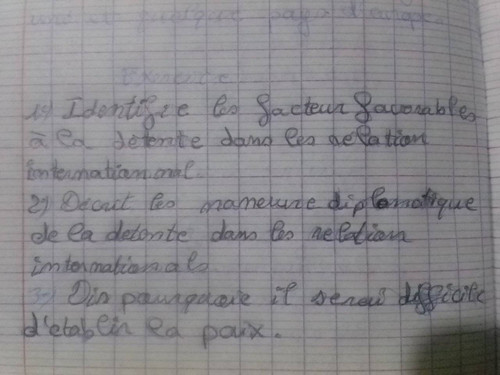 Exercice
1°) Identifie les facteur favorables
à la détente dans les relation
internationnal.
2°) Décrit les maneuvre diplomatique
de la detente dans les relation
internationals
3°) Dis pourquoie il serai difficile
d'etablir la paix.